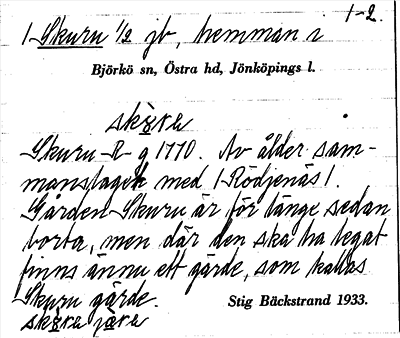 1-2.
1 Skuru 1/2 jb, hemman i
Björkö sn, Östra hd, Jönköpings l.
Skuru R g 1770. Av ålder sam-
manslaget med 1 Rödjenäs 1.
Gården Skuru är för länge sedan
borta, men där den ska ha legat
finns ännu ett gärde, som kallas
Skuru gärde.
Stig Bäckstrand 1933.